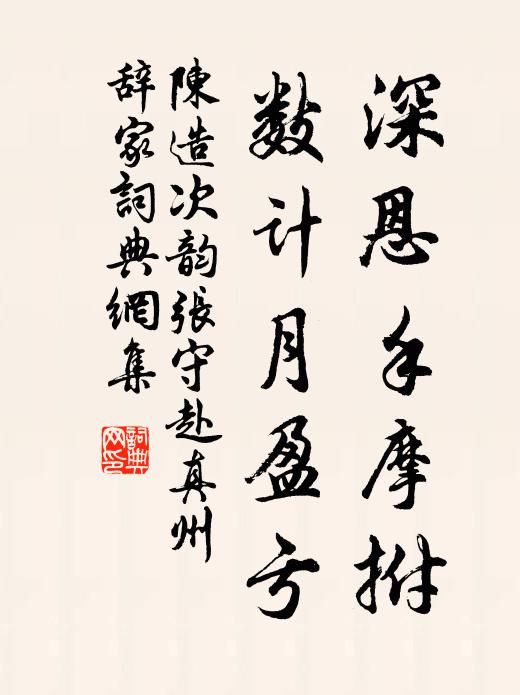 深恩手摩拊
数计月盈亏
陳造次韵張守赴真州
辞家詞典網集
詞典
网印